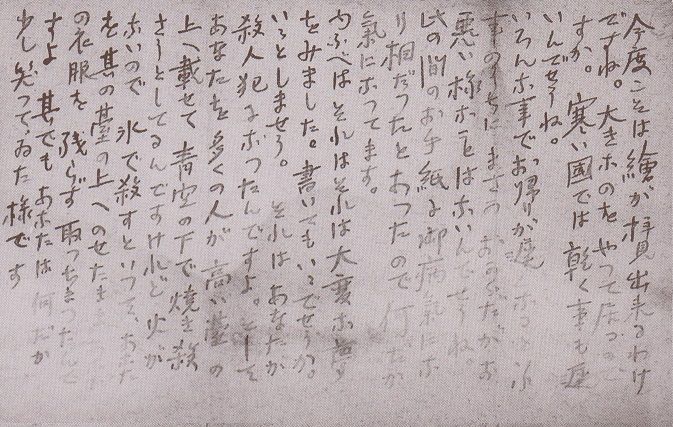 今度こそは繪が拝見出来るわけ
ですね。大きホのをやつて居るので
すか。寒い國では乾く事も遲
いんでせうね。
いろんホ事でお帰りが遲
事のうちにまさか おからだがお
悪い様ホことはホいんでせうね。
此の間のお手紙に御病氣にホ
り相だつたとあつたので 何だか
氣にホつてます。
ゆふべはそれはそれは大変ホ夢
をみました。書いてもいゝでせうか。
いゝとしませう。 それは あなたが
殺人犯にホつたんですよ。そして
あなたを多くの人が高い臺の
上へ載せて 青空の下で焼き殺
さうとしてるんですけれど 火が
ホいので 氷で殺すといつて、あなた
を其の臺の上へのせたまゝ
の衣服を 残らず 取つちまつたんで
すよ 其でもあホたは 何だか
少し笑つてゐた様です